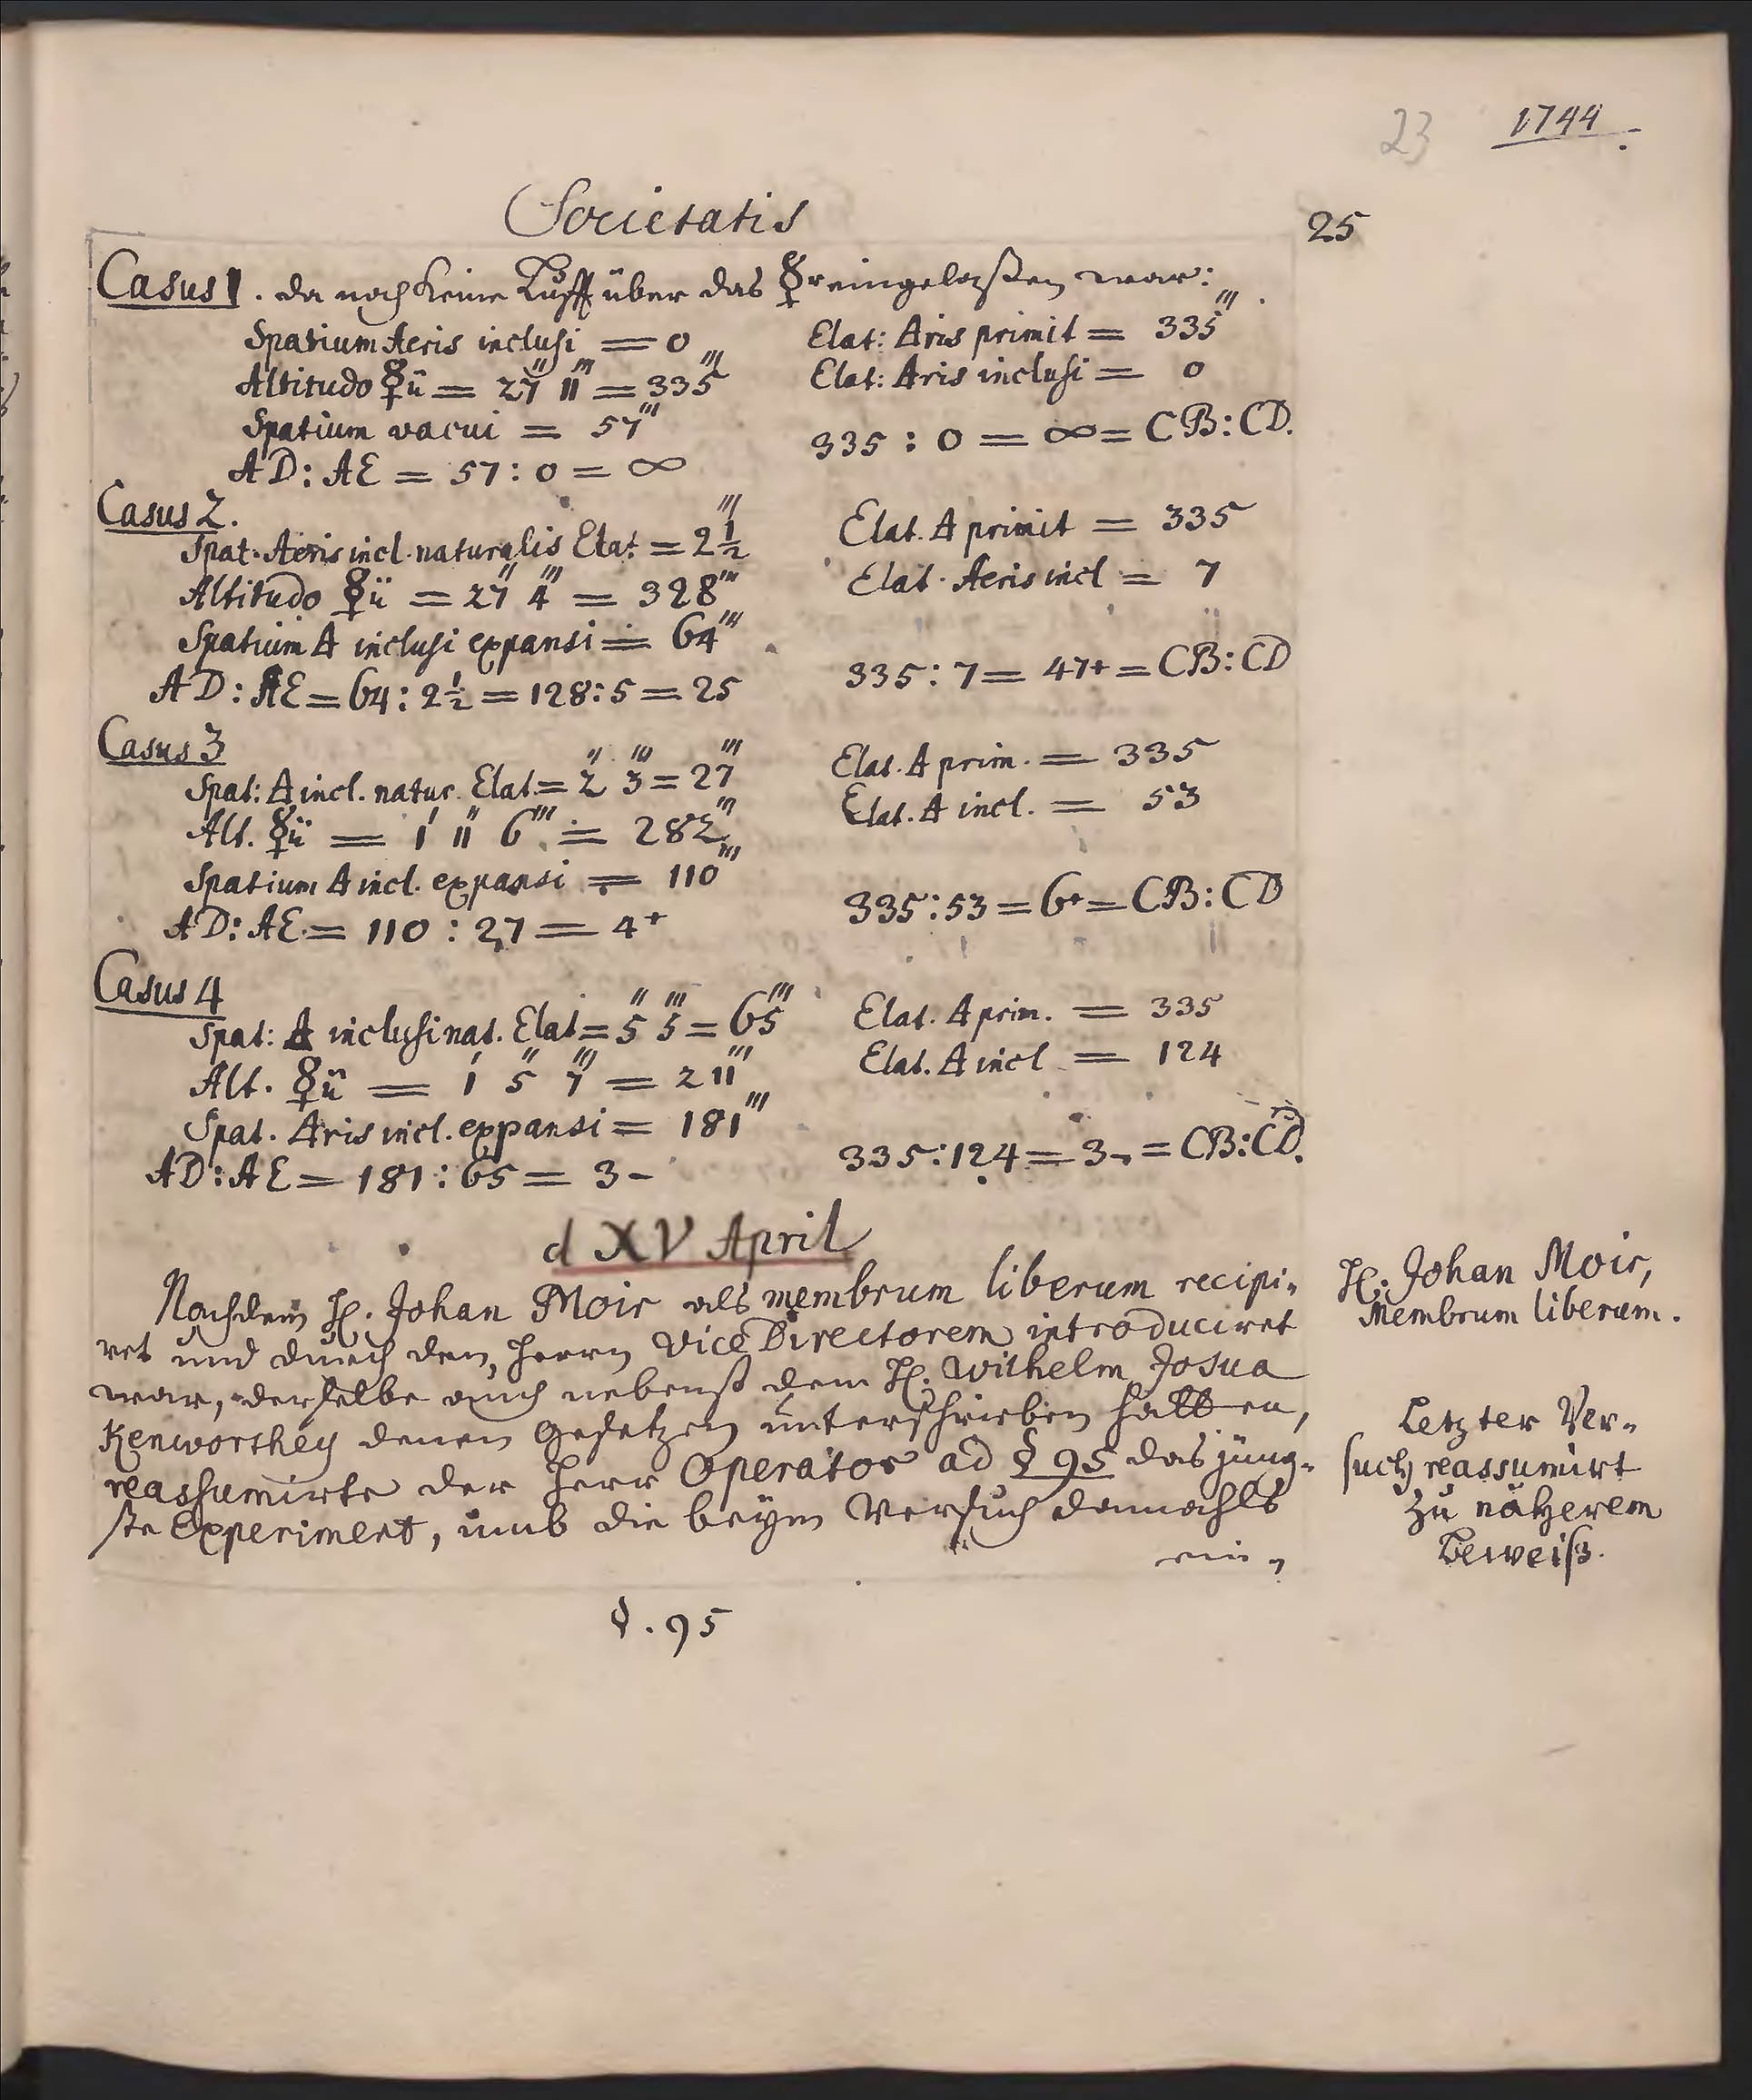 23 1744.
Societatis
25
Casus 1. da noch keine Lufft über das ☿ eingelaßen war:
Spatium Aeris inclusi = 0
Elat: Aris primit = 335'''
Altitudo ☿ii = 27'' 11''' = 335'''
Elat: Aris inclusi = 0
Spatium vacui = 57'''
335 : 0 = ∞ = CB:CD.
AD:AE = 57:0 = ∞
Casus 2.
Spat. Aeris incl. naturalis Elat. = 2½'''
Elat. A primit = 335
Altitudo ☿ii = 27'' 4''' = 328'''
Elat. Aeris incl = 7
Spatium A inclusi expansi = 64'''
335:7 = 47+ = CB:CD
AD:AE = 64:2½ = 128:5 = 25
Casus 3
Spat: A incl. natur. Elat = 2'' 3''' = 27'''
Elat. A prim. = 335
Alt. ☿ii = 1' 11'' 6''' = 282'''
Elat. A incl. = 53
Spatium A incl. expansi = 110'''
335:53 = 6+ = CB:CD
AD:AE = 110:27 = 4+
Casus 4
Spat: A inclusi nat. Elat = 5'' 5''' = 65'''
Elat. A prim. = 335
Alt. ☿ii = 1' 5'' 7''' = 211'''
Elat. A incl = 124
Spat. Aris incl. expansi = 181'''
335:124 = 3- = CB:CD.
AD:AE = 181:65 = 3-
d XV April
Nachdem H. Johan Moir als membrum liberum recipi-
ret und durch den Herrn Vice Directorem introduciret
war, derselbe auch nebenst dem H. Wilhelm Josua
Kenworthey denen Gesetzen unterschrieben hatten,
reassumirte der Herr Operator ad § 95 das jüng-
ste Experiment, umb die beym Versuch damahls
ein-
H. Johan Moir,
Membrum liberum.
Letzter Ver-
such reassumirt
zu näherem
Beweiß.
§. 95